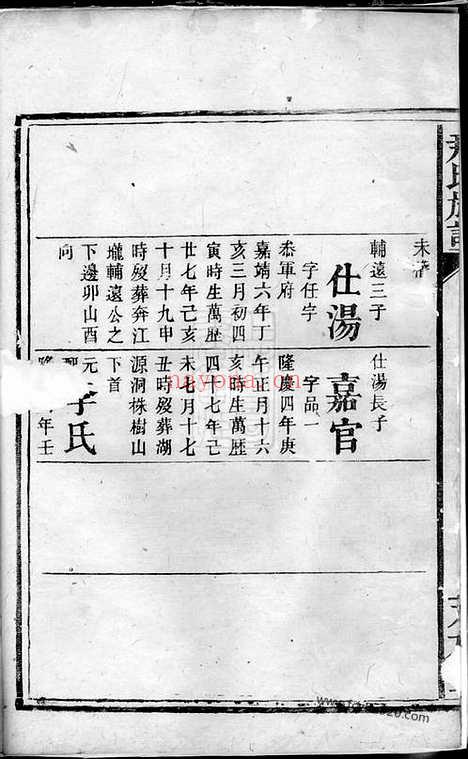 氏族譜
未
輔遠三子
仕湯
字任宇
叅軍府
嘉靖六年丁
亥三月初四
寅時生萬歴
廿七年己亥
十月十九申
時殁葬奔江
壠輔遠公之
下邊卯山酉
向
仕湯長子
嘉官
字品一
隆慶四年庚
午正月十六
亥時生萬歴
四十七年己
未七月十七
丑時殁葬湖
源洞株樹山
下首
元
李氏
年壬
nayona.cn